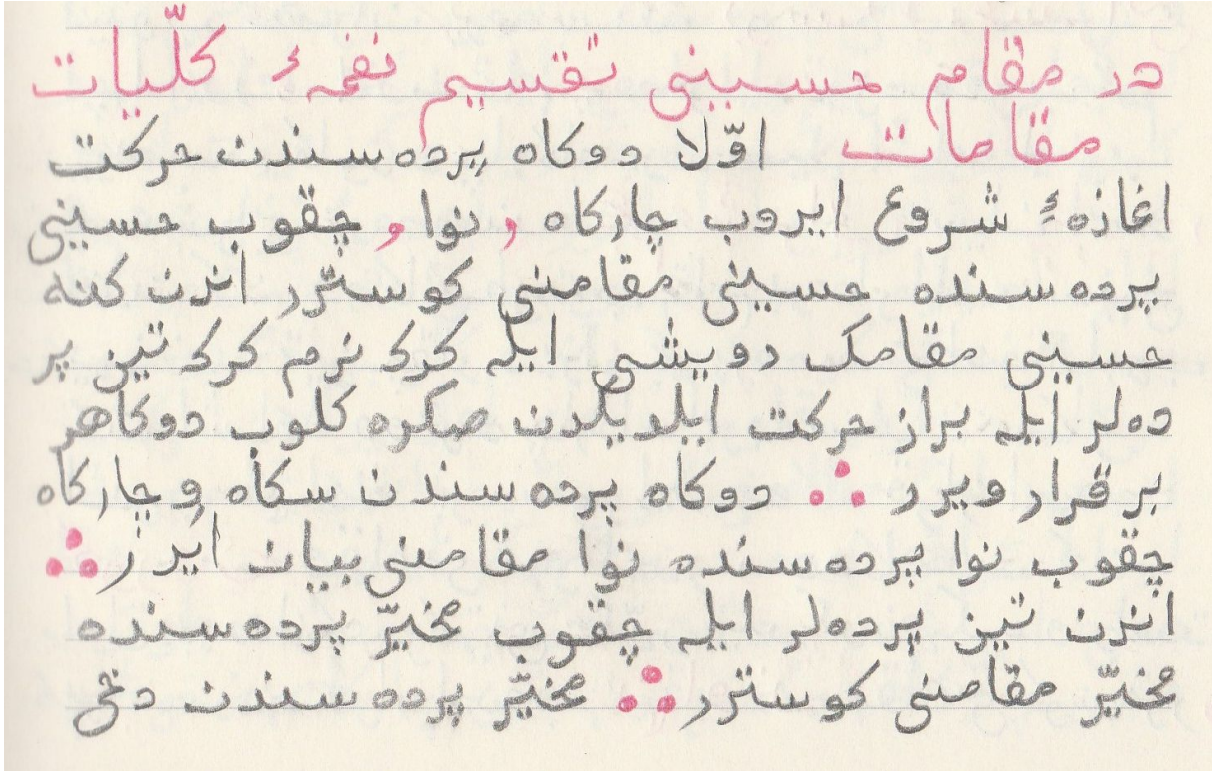 در مقام حسینی تقسیم نغمهٔ کلّیات
مقامات اوّلا دوکاه پرده سندن حرکت
اغازهٔ شروع ایروب چارکاه , نوا , چقوب حسینی
پرده سنده حسینی مقامنی کوسترر اندن کنه
حسینی مقامک دویشی ایله کرک نرم کرک تیز پر
ده‌لر ایله براز حرکت ایلدیلدن صکره کلوب دوکاهر
برقرار ویرر ∴ دوکاه پرده سندن سکاه و چارکاه
چقوب نوا پرده سنده نوا مقامنی بیان ایدر ∴
اندن تیز پرده‌لر ایله چقوب مخیّر پرده سنده
مخیّر مقامنی کوسترر ∴ مخیّر پرده سندن دخی